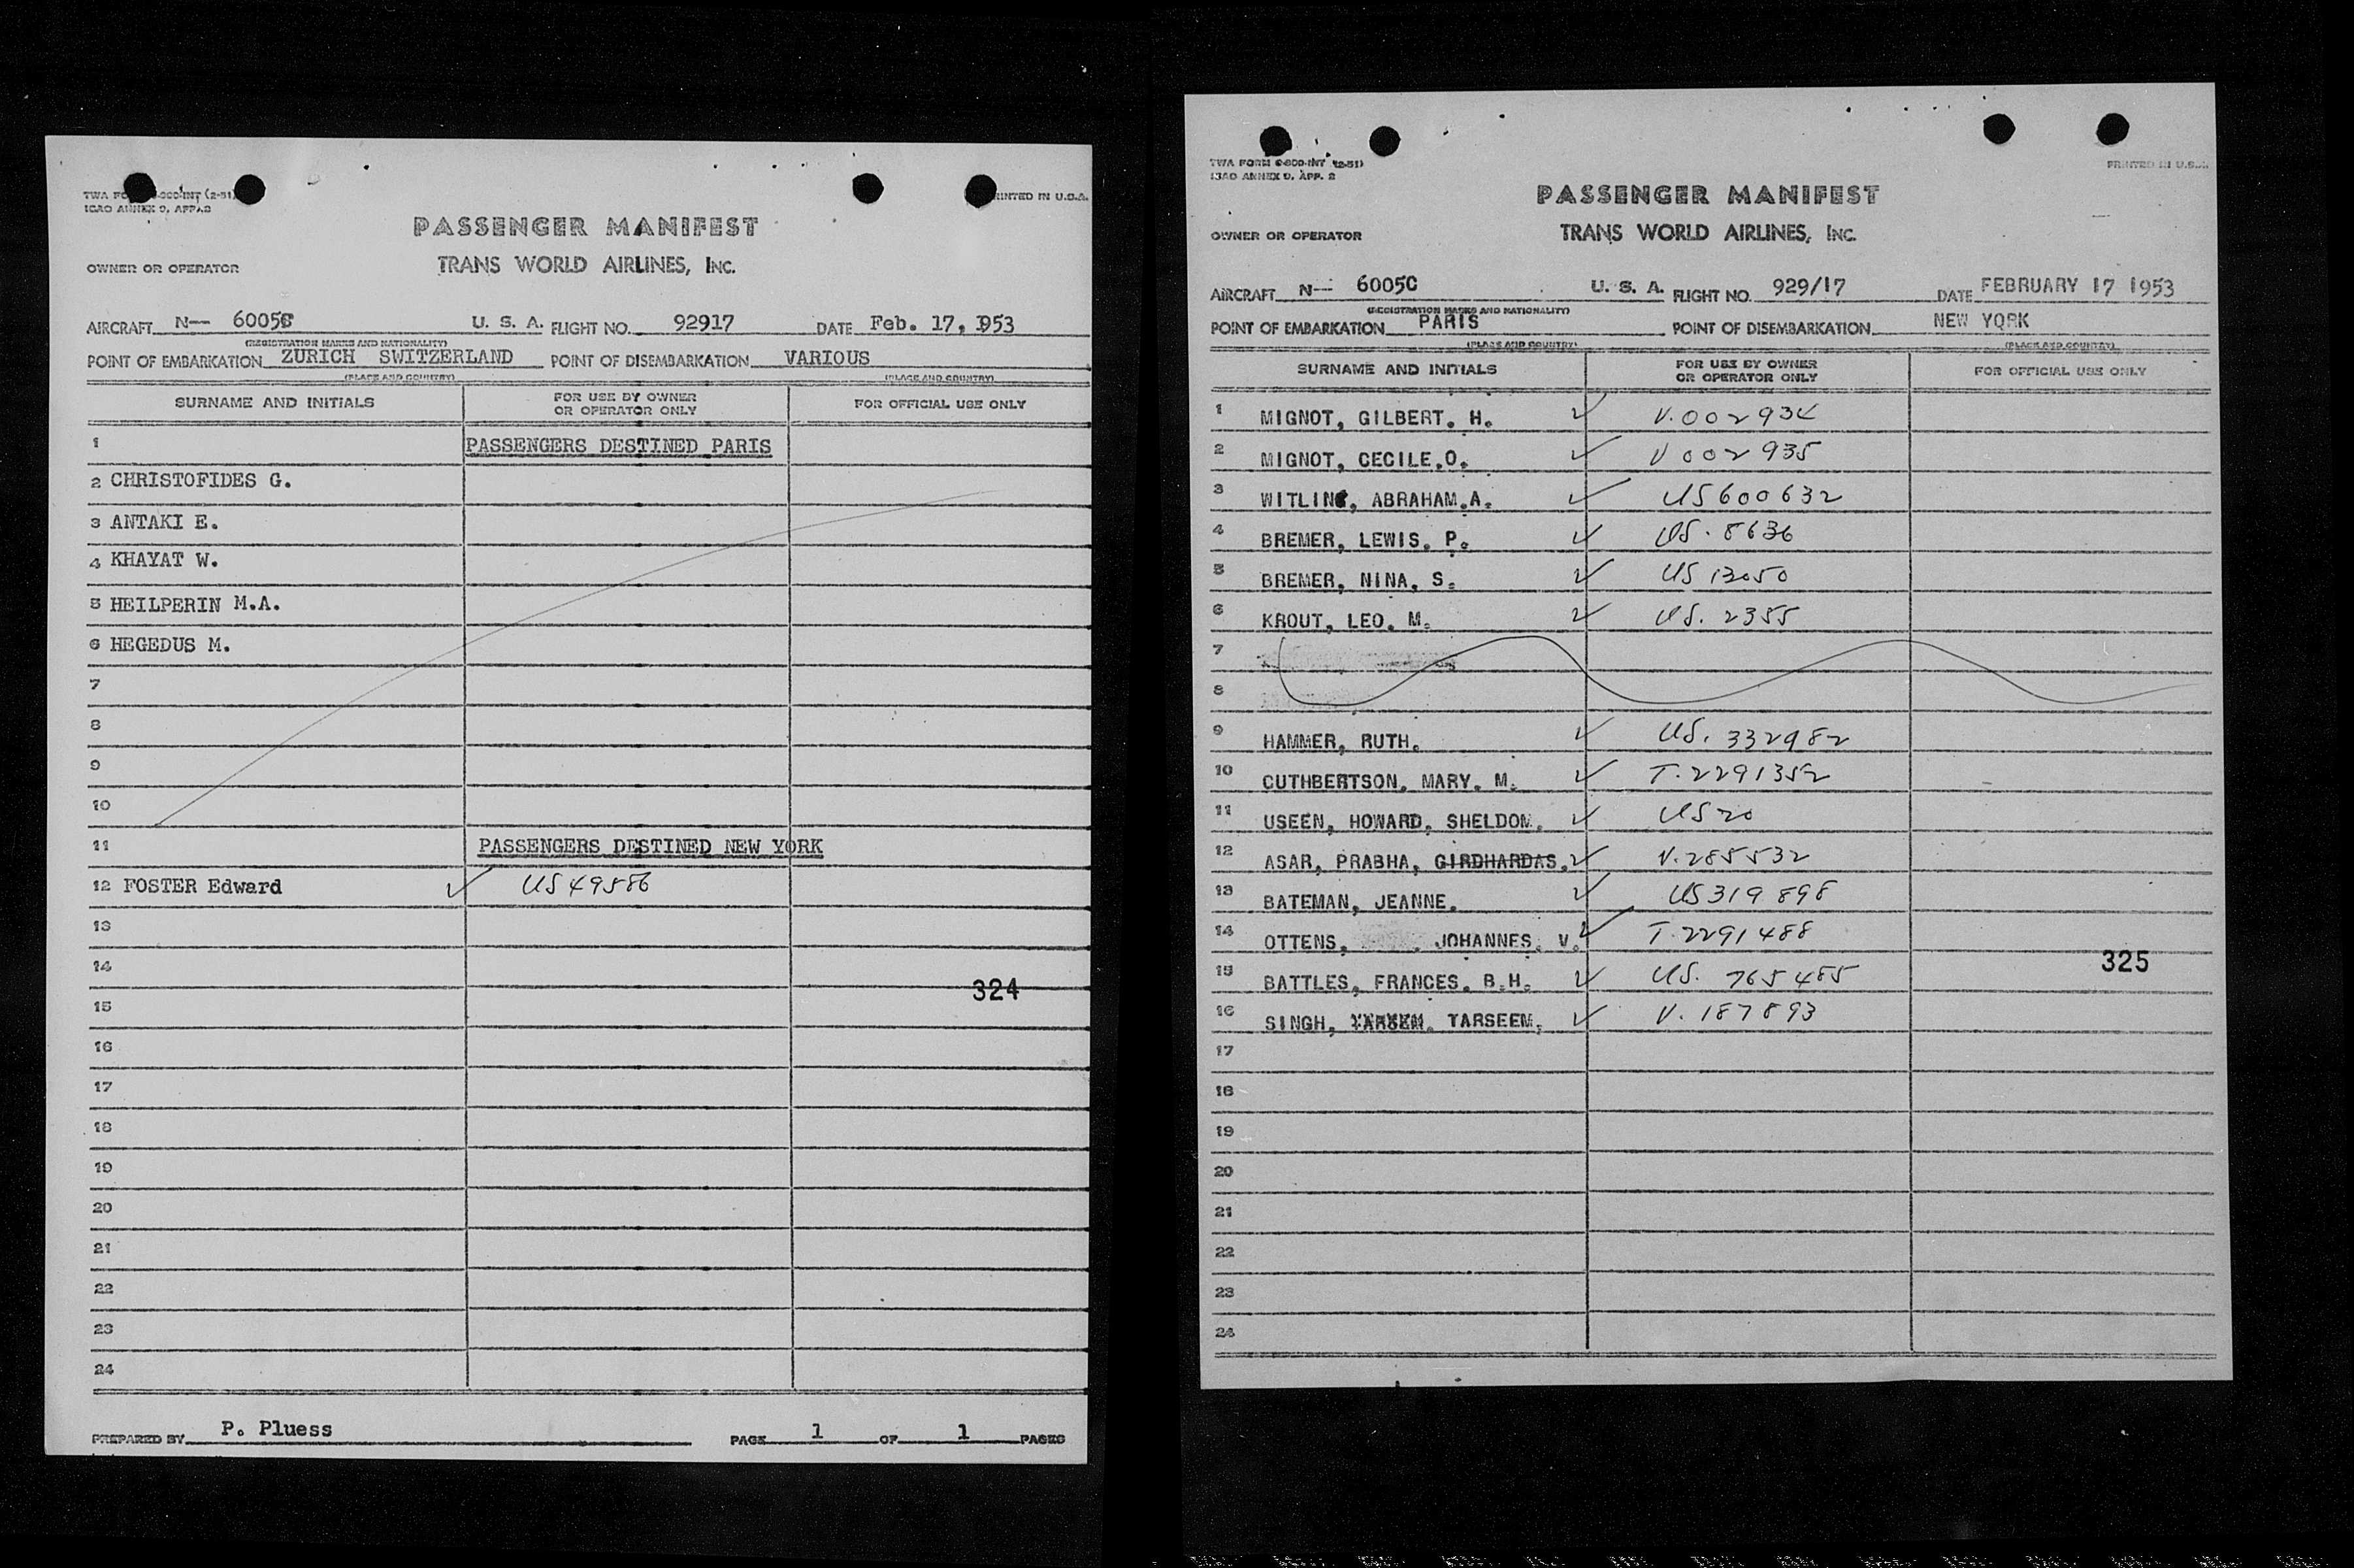 TWA FO 
ICAO ANNEX 9, APP. 2
PRINTED IN U.S.A.
PASSENGER MANIFEST
OWNER OR OPERATOR TRANS WORLD AIRLINES, INC.
AIRCRAFT N-- 6005C U. S. A. FLIGHT NO. 92917 DATE Feb. 17, 1953
(REGISTRATION MARKS AND NATIONALITY)
POINT OF EMBARKATION ZURICH SWITZERLAND POINT OF DISEMBARKATION VARIOUS
(PLACE AND COUNTRY) (PLACE AND COUNTRY)
SURNAME AND INITIALS FOR USE BY OWNER OR OPERATOR ONLY FOR OFFICIAL USE ONLY
1 PASSENGERS DESTINED PARIS
2 CHRISTOFIDES G.
3 ANTAKI E.
4 KHAYAT W.
5 HEILPERIN M.A.
6 HEGEDUS M.
7
8
9
10
11 PASSENGERS DESTINED NEW YORK
12 FOSTER Edward ✓ US 49586
13
14
324
15
16
17
18
19
20
21
22
23
24
PREPARED BY P. Pluess PAGE 1 OF 1 PAGES
TWA FORM (2-51)
ICAO ANNEX 9, APP. 2
PRINTED IN U.S.A.
PASSENGER MANIFEST
OWNER OR OPERATOR TRANS WORLD AIRLINES, INC.
AIRCRAFT N-- 6005C U. S. A. FLIGHT NO. 929/17 DATE FEBRUARY 17 1953
(REGISTRATION MARKS AND NATIONALITY)
POINT OF EMBARKATION PARIS POINT OF DISEMBARKATION NEW YORK
(PLACE AND COUNTRY) (PLACE AND COUNTRY)
SURNAME AND INITIALS FOR USE BY OWNER OR OPERATOR ONLY FOR OFFICIAL USE ONLY
1 MIGNOT, GILBERT. H. ✓ V.002934
2 MIGNOT, CECILE.O. ✓ V 002935
3 WITLING, ABRAHAM.A. ✓ US600632
4 BREMER, LEWIS. P. ✓ US. 8636
5 BREMER, NINA. S. ✓ US 13050
6 KROUT, LEO. M. ✓ US. 2355
7
8
9 HAMMER, RUTH. ✓ US. 332982
10 CUTHBERTSON, MARY. M. ✓ T.2291352
11 USEEN, HOWARD. SHELDON. ✓ US 20
12 ASAR, PRABHA, GIRDHARDAS. ✓ V.285532
13 BATEMAN, JEANNE. ✓ US 319 898
14 OTTENS, JOHANNES. V. ✓ T.2291488
15 BATTLES, FRANCES. B.H. ✓ US. 765485
325
16 SINGH, TARSEEM. ✓ V. 187893
17
18
19
20
21
22
23
24